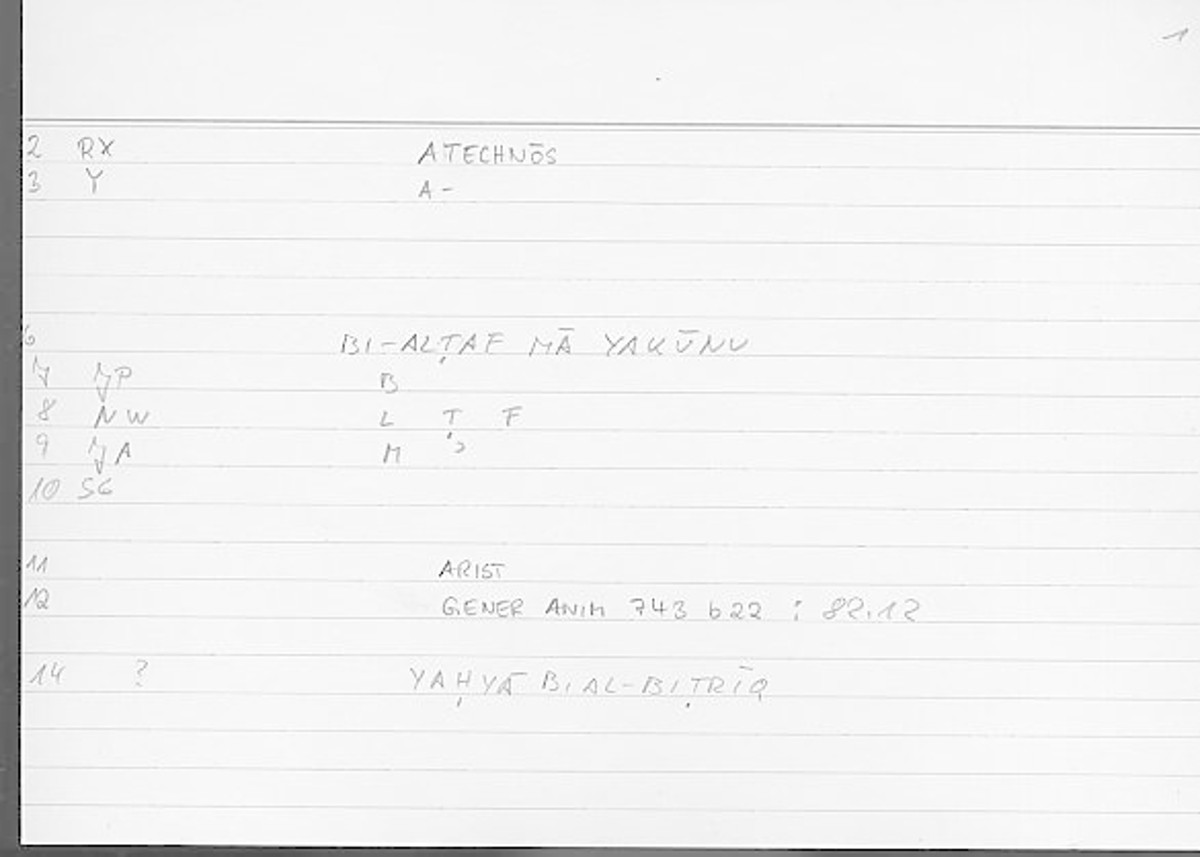 1
2 RX ATECHNŌS
3 Y A-
6 BI-ALṬAF MĀ YAKŪNU
7 JP B
8 NW L Ṭ F
9 JA M ʾ
10 SG
11 ARIST
12 GENER ANIM 743 b 22 : 82.12
14 ? YAḤYĀ B. AL-BIṬRĪQ